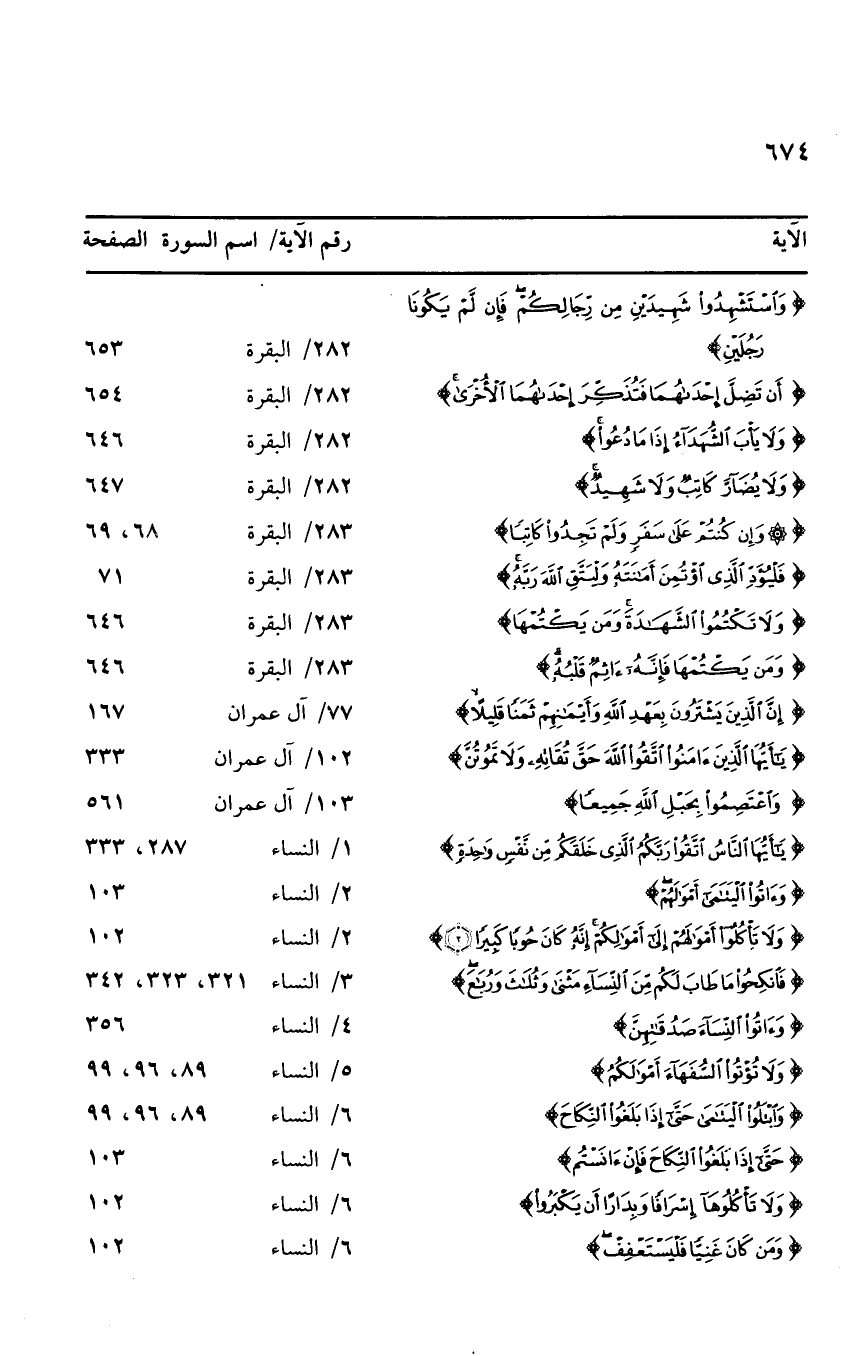 ٦٧٤
الآية رقم الآية/ اسم السورة الصفحة
﴿ وَٱسۡتَشۡهِدُواْ شَهِيدَيۡنِ مِن رِّجَالِكُمۡۖ فَإِن لَّمۡ يَكُونَا
رَجُلَيۡنِ﴾ ٢٨٢/ البقرة ٦٥٣
﴿ أَن تَضِلَّ إِحۡدَىٰهُمَا فَتُذَكِّرَ إِحۡدَىٰهُمَا ٱلۡأُخۡرَىٰۚ﴾ ٢٨٢/ البقرة ٦٥٤
﴿ وَلَا يَأۡبَ ٱلشُّهَدَآءُ إِذَا مَا دُعُواْۚ﴾ ٢٨٢/ البقرة ٦٤٦
﴿ وَلَا يُضَآرَّ كَاتِبٞ وَلَا شَهِيدٞۚ﴾ ٢٨٢/ البقرة ٦٤٧
﴿ ۞ وَإِن كُنتُمۡ عَلَىٰ سَفَرٖ وَلَمۡ تَجِدُواْ كَاتِبٗا﴾ ٢٨٣/ البقرة ٦٨، ٦٩
﴿ فَلۡيُؤَدِّ ٱلَّذِي ٱؤۡتُمِنَ أَمَٰنَتَهُۥ وَلۡيَتَّقِ ٱللَّهَ رَبَّهُۥۚ﴾ ٢٨٣/ البقرة ٧١
﴿ وَلَا تَكۡتُمُواْ ٱلشَّهَٰدَةَۚ وَمَن يَكۡتُمۡهَا﴾ ٢٨٣/ البقرة ٦٤٦
﴿ وَمَن يَكۡتُمۡهَا فَإِنَّهُۥٓ ءَاثِمٞ قَلۡبُهُۥۗ﴾ ٢٨٣/ البقرة ٦٤٦
﴿ إِنَّ ٱلَّذِينَ يَشۡتَرُونَ بِعَهۡدِ ٱللَّهِ وَأَيۡمَٰنِهِمۡ ثَمَنٗا قَلِيلًا﴾ ٧٧/ آل عمران ١٦٧
﴿ يَٰٓأَيُّهَا ٱلَّذِينَ ءَامَنُواْ ٱتَّقُواْ ٱللَّهَ حَقَّ تُقَاتِهِۦ وَلَا تَمُوتُنَّ﴾ ١٠٢/ آل عمران ٣٣٣
﴿ وَٱعۡتَصِمُواْ بِحَبۡلِ ٱللَّهِ جَمِيعٗا﴾ ١٠٣/ آل عمران ٥٦١
﴿ يَٰٓأَيُّهَا ٱلنَّاسُ ٱتَّقُواْ رَبَّكُمُ ٱلَّذِي خَلَقَكُم مِّن نَّفۡسٖ وَٰحِدَةٖ﴾ ١/ النساء ٢٨٧، ٣٣٣
﴿ وَءَاتُواْ ٱلۡيَتَٰمَىٰٓ أَمۡوَٰلَهُمۡۖ﴾ ٢/ النساء ١٠٣
﴿ وَلَا تَأۡكُلُوٓاْ أَمۡوَٰلَهُمۡ إِلَىٰٓ أَمۡوَٰلِكُمۡۚ إِنَّهُۥ كَانَ حُوبٗا كَبِيرٗا ٢﴾ ٢/ النساء ١٠٢
﴿ فَٱنكِحُواْ مَا طَابَ لَكُم مِّنَ ٱلنِّسَآءِ مَثۡنَىٰ وَثُلَٰثَ وَرُبَٰعَۖ﴾ ٣/ النساء ٣٢١، ٣٢٣، ٣٤٢
﴿ وَءَاتُواْ ٱلنِّسَآءَ صَدُقَٰتِهِنَّ﴾ ٤/ النساء ٣٥٦
﴿ وَلَا تُؤۡتُواْ ٱلسُّفَهَآءَ أَمۡوَٰلَكُمُ﴾ ٥/ النساء ٨٩، ٩٦، ٩٩
﴿ وَٱبۡتَلُواْ ٱلۡيَتَٰمَىٰ حَتَّىٰٓ إِذَا بَلَغُواْ ٱلنِّكَاحَ﴾ ٦/ النساء ٨٩، ٩٦، ٩٩
﴿ حَتَّىٰٓ إِذَا بَلَغُواْ ٱلنِّكَاحَ فَإِنۡ ءَانَسۡتُم﴾ ٦/ النساء ١٠٣
﴿ وَلَا تَأۡكُلُوهَآ إِسۡرَافٗا وَبِدَارًا أَن يَكۡبَرُواْ﴾ ٦/ النساء ١٠٢
﴿ وَمَن كَانَ غَنِيّٗا فَلۡيَسۡتَعۡفِفۡۖ﴾ ٦/ النساء ١٠٢